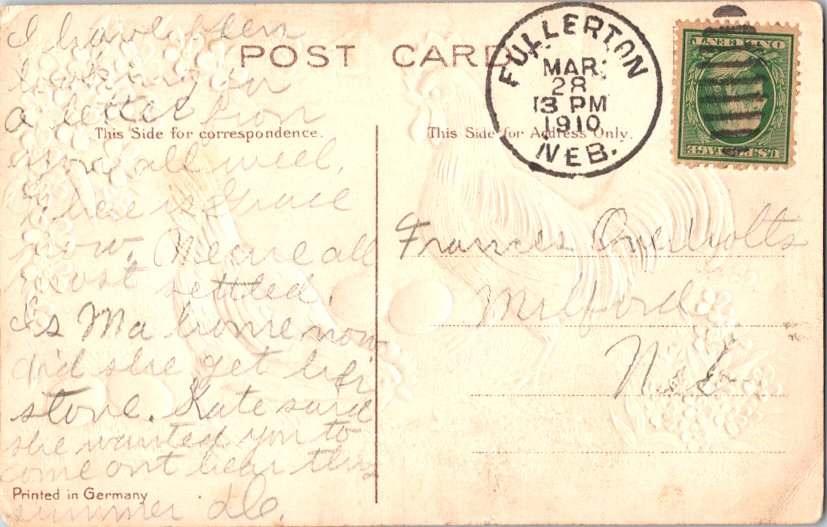 POST CARD
FULLERTON
MAR.
28
3 PM
1910
NEB.
ONE CENT
U.S. POSTAGE
This Side for correspondence.
This Side for Address Only.
I have been
looking for
a letter from
you all week.
Where is Grace
now. We are all
most settled.
Is Ma home now
did she get her
stove. Kate said
she wanted you to
come out hear this
summer
Frances Overholts
Milford
Neb
Printed in Germany